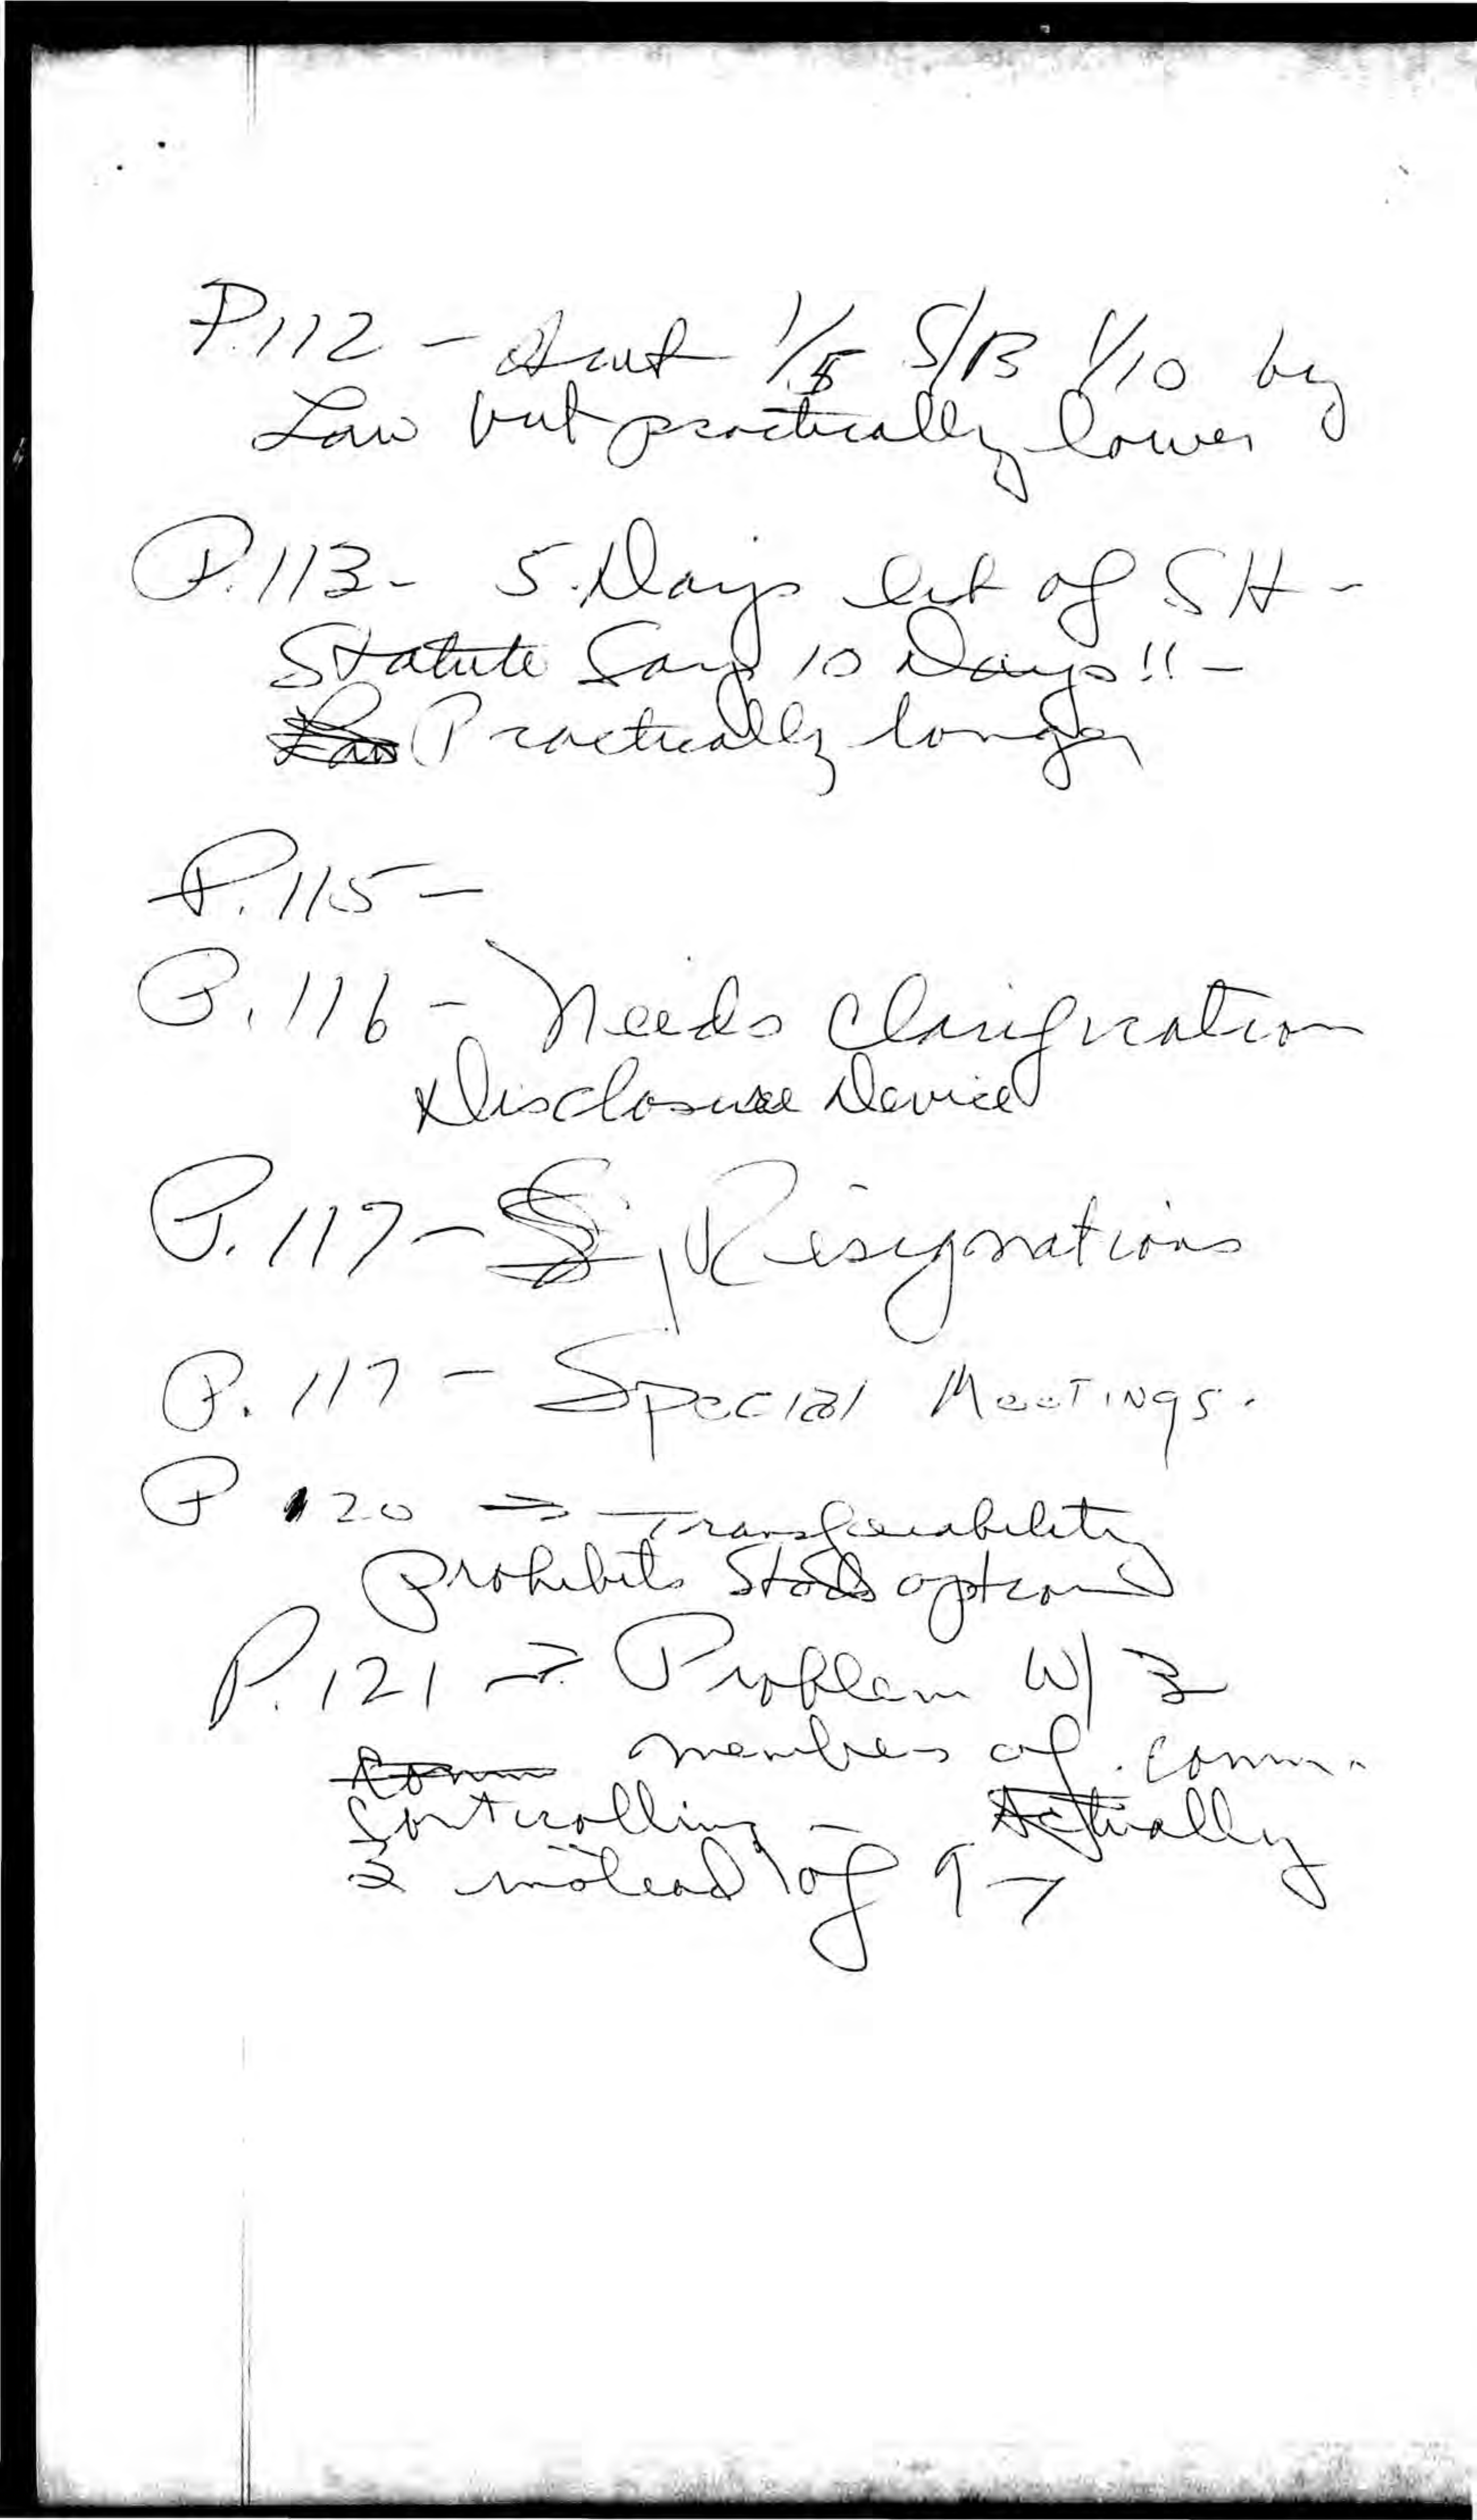 P.112 - 1/5 S/B 1/10 by
Law but practically lower
P.113 - 5 Days list of SH -
Statute Says 10 Days!! -
Practically longer
P.115 -
P.116 - Needs Clarification
Disclosure Device
P.117 - Resignations
P.117 - Special Meetings.
P 120 → Transferability
prohibits Stock option
P.121 → Problem W/
members of comm.
Controlling - Actually
2 instead of